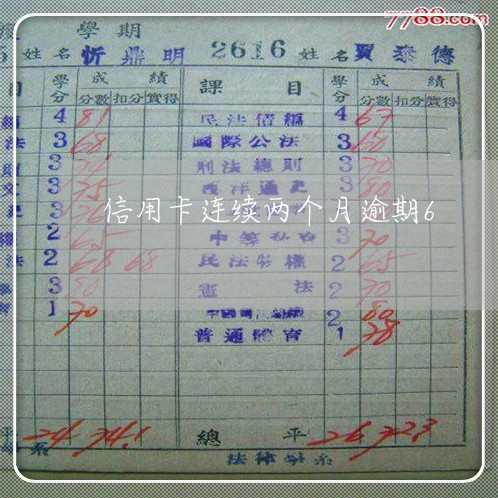 7788.com
學期
5 姓名 忻鼎明 2616 姓名 賈泰德
目 學分 成績 課目 學分 成績
分數 扣分 實得 分數 扣分 實得
4 81 民法債編 4 67
法 3 68 國際公法 3 60
3 刑法總則 3 70
文 3 75 3 80
3
信用卡连续两个月逾期6
權 2 65 3 70
法 2 68 68 民法物權 2 65
3 80 憲法 2 70
育 1 70 2 80
普通體育 1 78
平 24 74.1 總平 26 72.3
系 法律學系